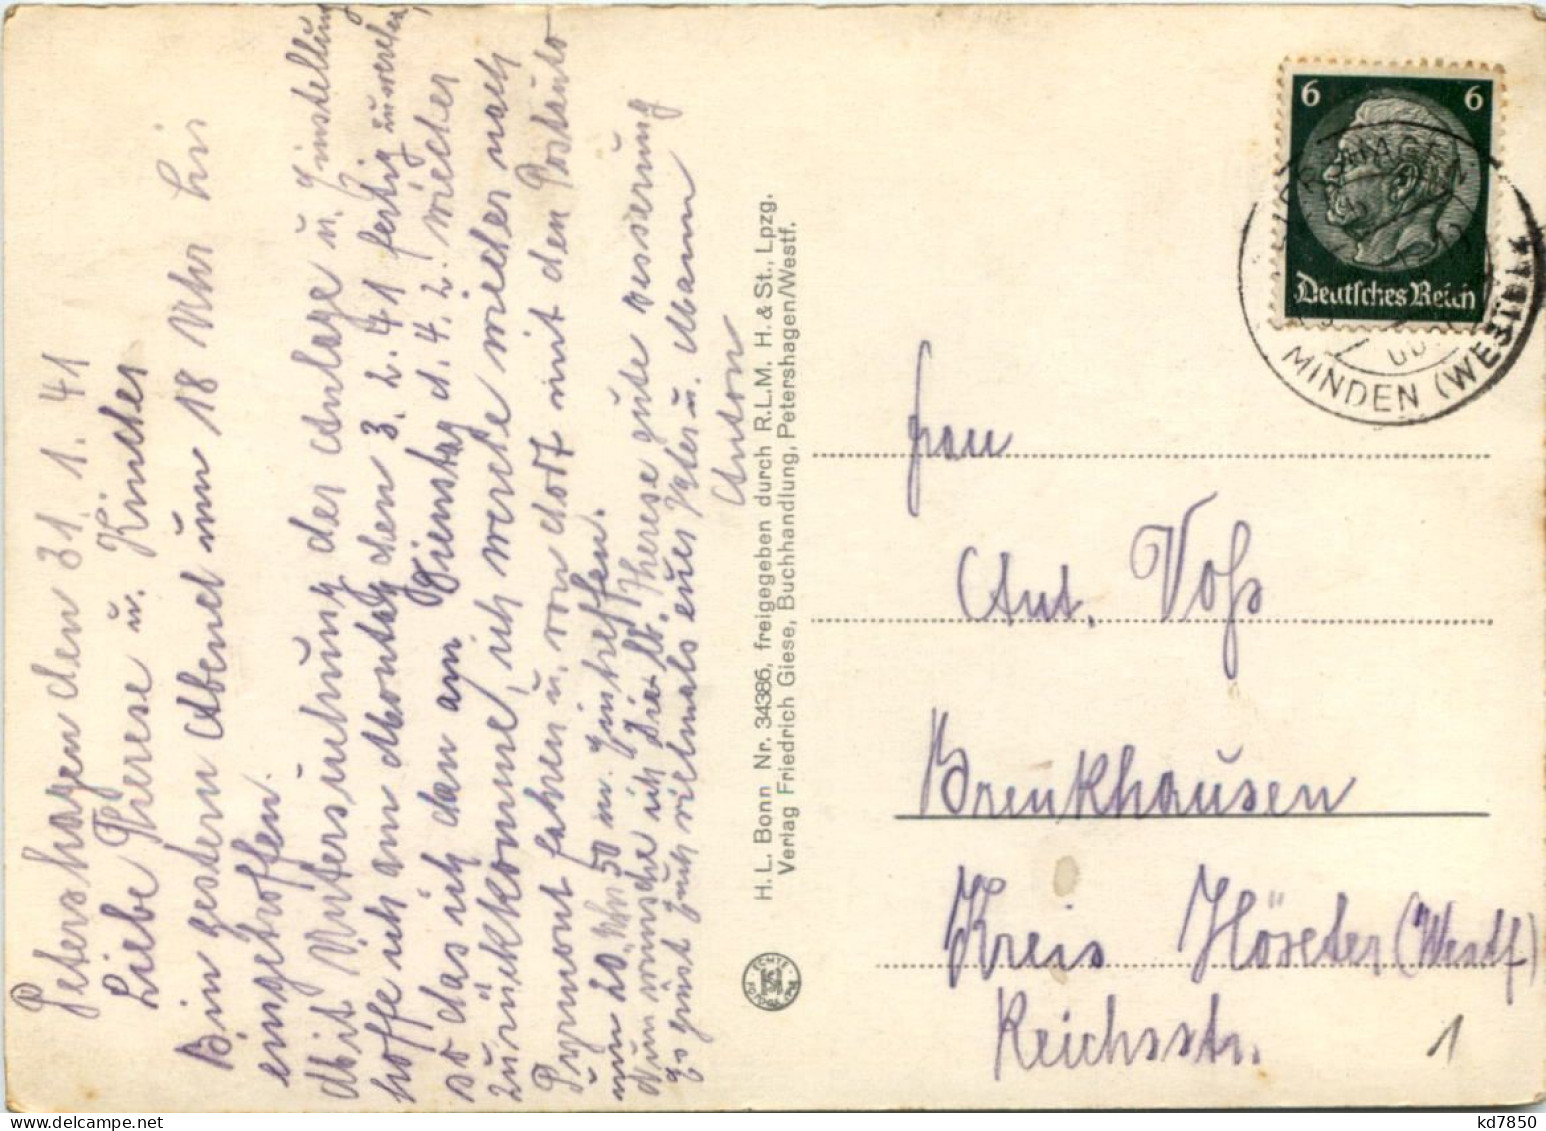 Petershagen den 31. 1. 41
Liebe Therese u. Kinder
Bin gestern Abend um 18 Uhr hir
eingetroffen.
Mit Untersuchung der Anlage u. Einstellung
hoffe ich am Montag den 3. 2. 41 fertig zu werden,
so das ich dan am Dienstag d. 4. 2. wieder
zurückkomme, ich werde wieder nach
Pyrmont fahren u. von dort mit den Postauto
um 20 Uhr 50 m. Eintreffen.
Nun wünsche ich Dir lb. Therese gute Besserung
Es grüst Euch vielmals euer Vater u. Mann
Anton
H. L. Bonn Nr. 34386, freigegeben durch R.L.M. H. & St., Lpzg.
Verlag Friedrich Giese, Buchhandlung, Petershagen/Westf.
ECHTE
6 6
Deutsches Reich
MINDEN (WESTF)
Frau
Ant. Voß
Brenkhausen
Kreis Höxter (Westf)
Reichsstr.
1
kd7850